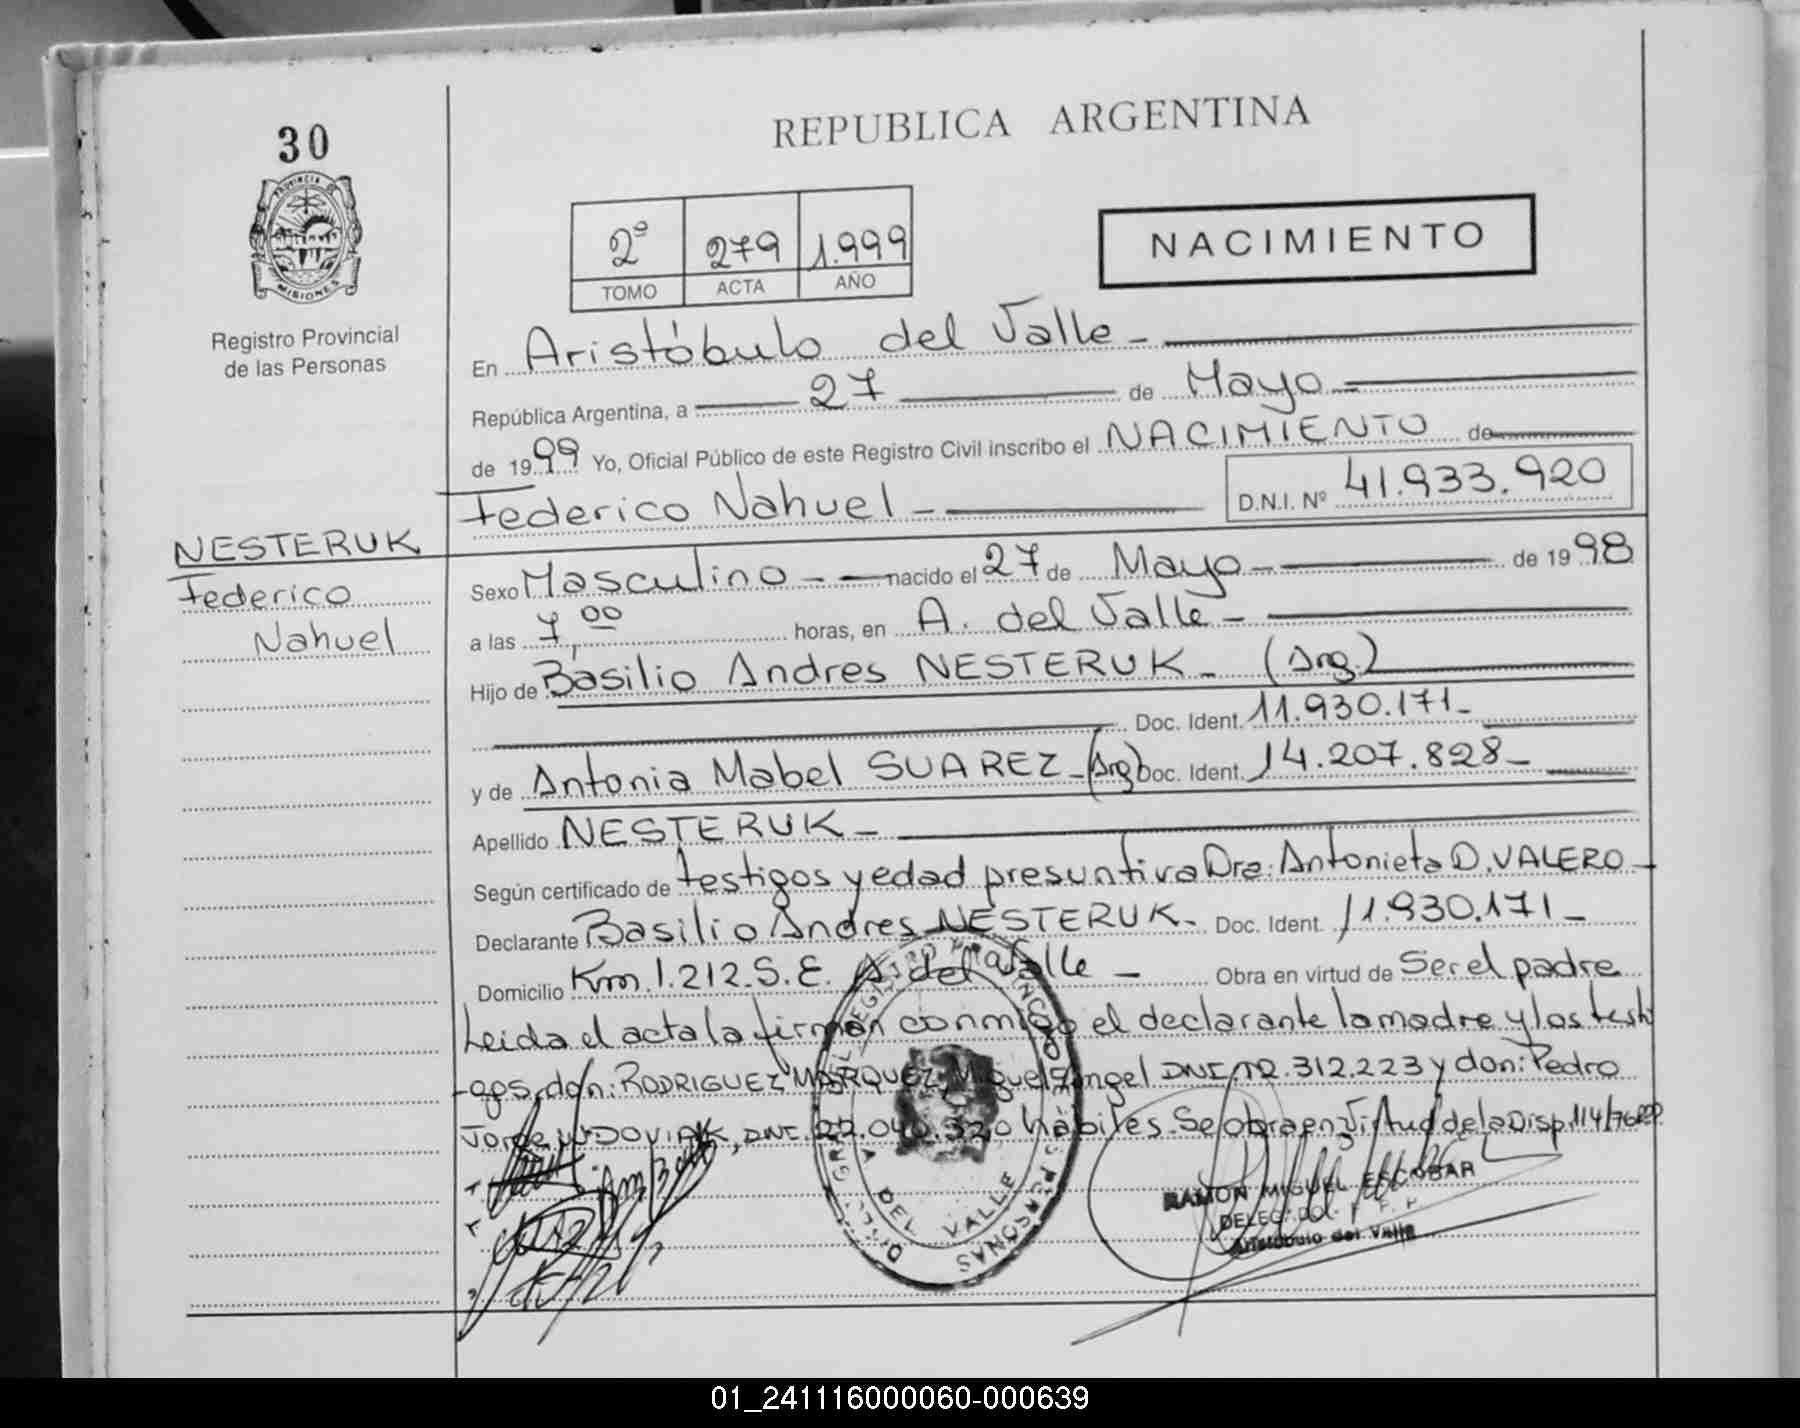 30
PROVINCIA DE
MISIONES
Registro Provincial
de las Personas
REPUBLICA ARGENTINA
2º 279 1.999
TOMO ACTA AÑO
NACIMIENTO
En Aristóbulo del Valle -
República Argentina, a 27 de Mayo -
de 1999 Yo, Oficial Público de este Registro Civil inscribo el NACIMIENTO de
Federico Nahuel - D.N.I. Nº 41.933.920
NESTERUK
Federico
Nahuel
Sexo Masculino - nacido el 27 de Mayo - de 1998
a las 7,00 horas, en A. del Valle -
Hijo de Basilio Andres NESTERUK - (Arg.)
Doc. Ident. 11.930.171 -
y de Antonia Mabel SUAREZ - (Arg) Doc. Ident. 14.207.828 -
Apellido NESTERUK -
Según certificado de testigos y edad presuntiva Dra: Antonieta D. VALERO -
Declarante Basilio Andres NESTERUK - Doc. Ident. 11.930.171 -
Domicilio Km 1.212 S.E. A. del Valle - Obra en virtud de Ser el padre
Leida el acta la firman conmigo el declarante la madre y los testi
-gos, don: RODRIGUEZ MARQUEZ, Miguel Angel DNI 12.312.223 y don: Pedro
Jorge WDOVIAK, DNI. 22.040.320 habiles. Se obra en Virtud de la Disp. 114/76
DEL VALLE
RAMON MIGUEL ESCOBAR
DELEGADO R. P. P.
Aristóbulo del Valle
01_241116000060-000639